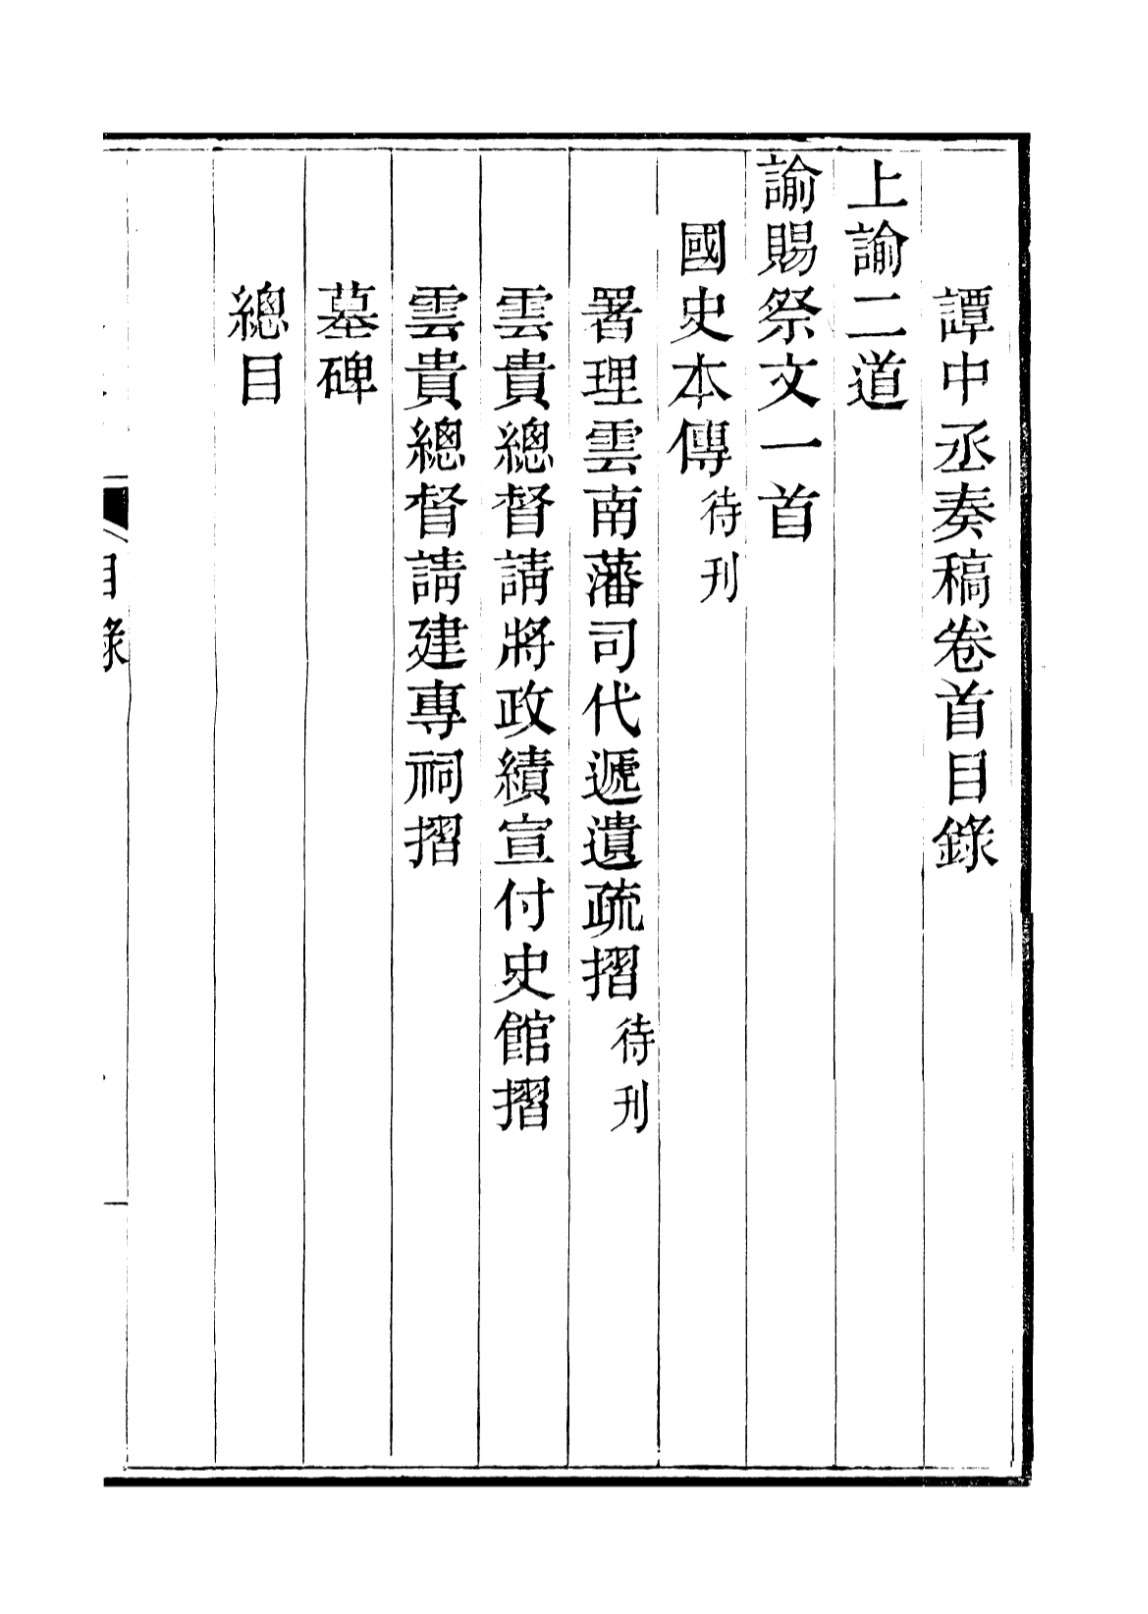 譚中丞奏稿卷首目錄
上諭二道
諭賜祭文一首
國史本傳待刊
署理雲南藩司代遞遺疏摺待刊
雲貴總督請將政績宣付史館摺
雲貴總督請建專祠摺
墓碑
總目
目錄
一